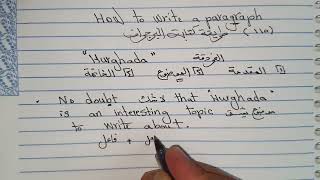 How to write a paragraph
(١١٥) طريقة كتابة البرجراف
"Hurghada" الغردقة
١ المقدمة ٢ الموضوع ٣ الخاتمة
• No doubt لا شك that "Hurghada"
is an interesting topic موضوع شيق
to write about.
فاعل +